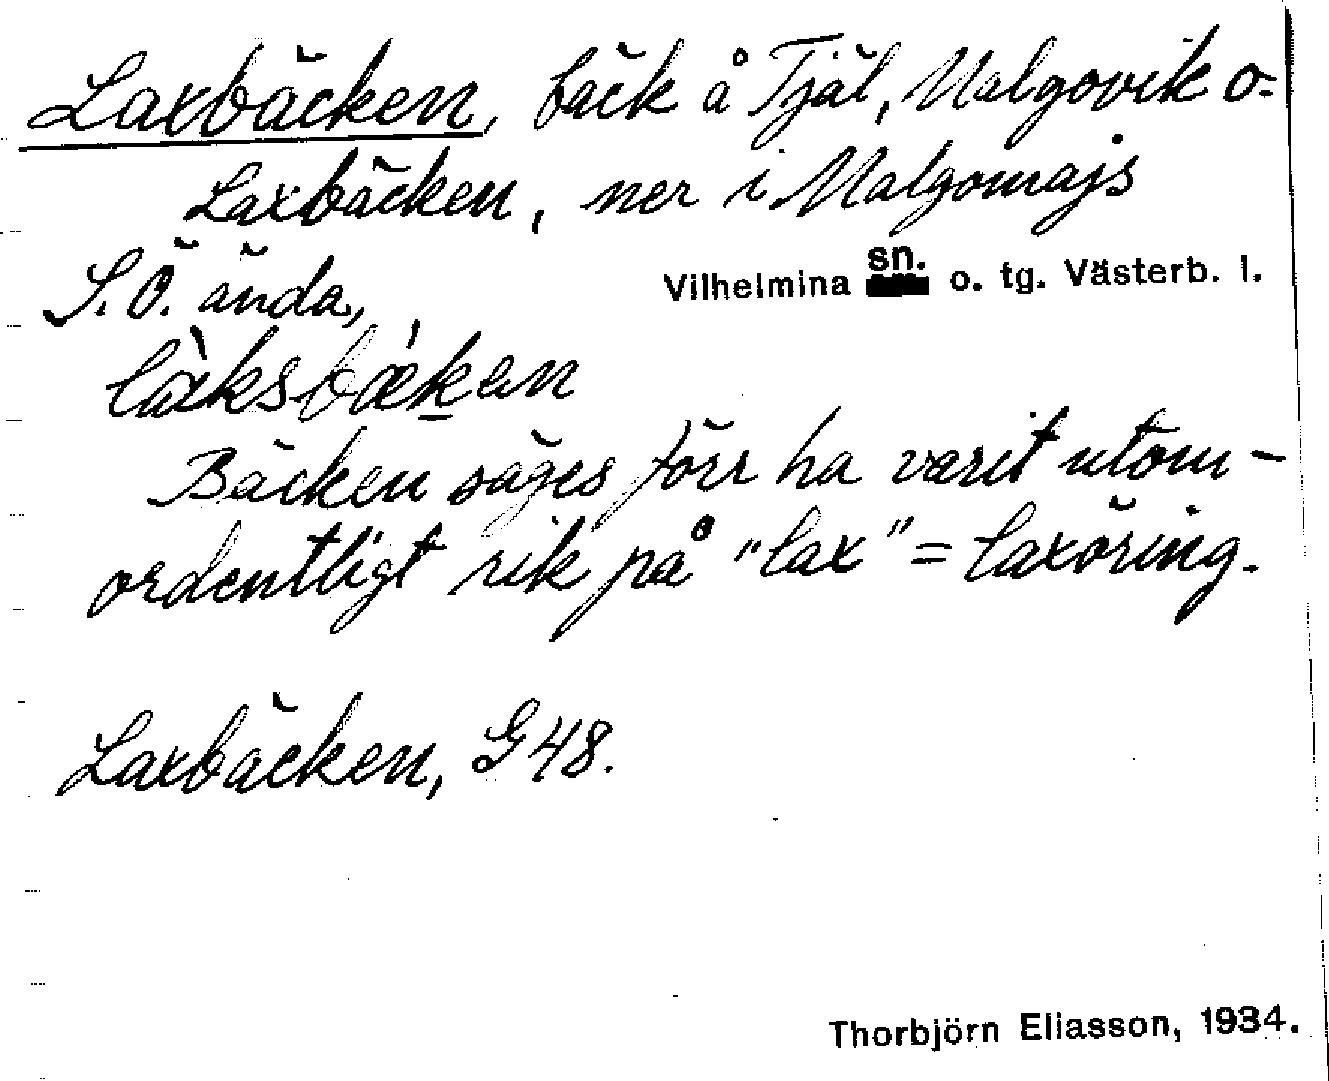 Laxbäcken, bäck å Tjäl, Malgovik o.
Laxbäcken, ner i Malgomajs
S.Ö. ända, Vilhelmina sn. o. tg. Västerb. l.
làksbækan
Bäcken säges förr ha varit utom-
ordentligt rik på "lax" = laxöring.
Laxbäcken, G48.
Thorbjörn Eliasson, 1934.